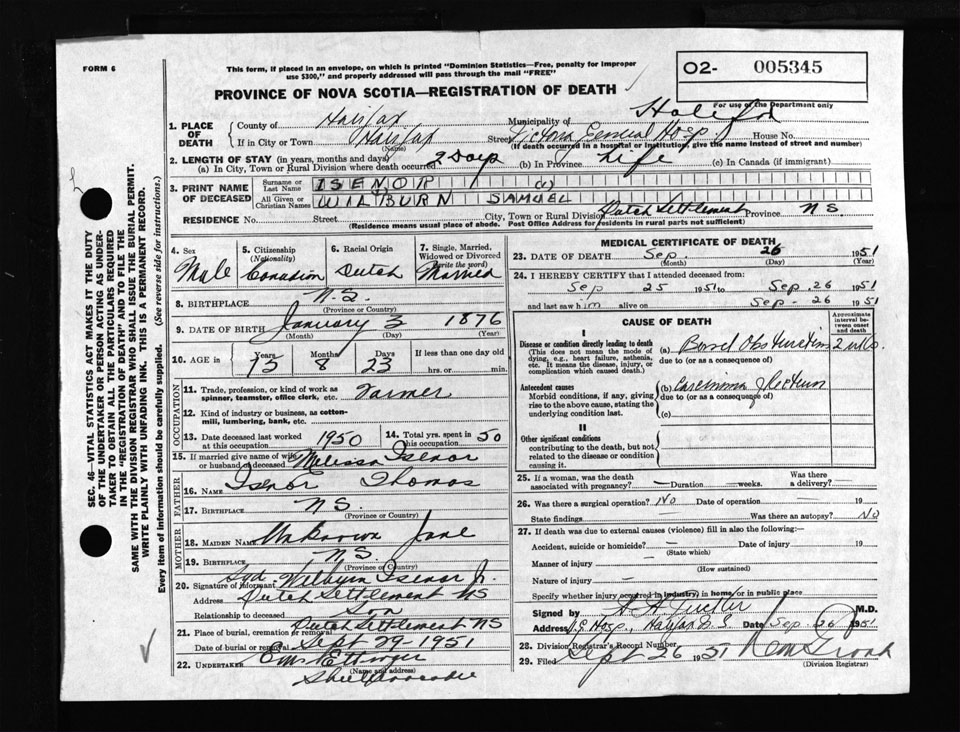 FORM 6
This form, if placed in an envelope, on which is printed "Dominion Statistics—Free, penalty for improper
use $300," and properly addressed will pass through the mail "FREE"
O2- 005345
PROVINCE OF NOVA SCOTIA—REGISTRATION OF DEATH
For use of the Department only
1. PLACE OF DEATH
County of Halifax Municipality of Halifax
If in City or Town Halifax Street Victoria General Hosp House No.
(Name) (If death occurred in a hospital or institution, give the name instead of street and number)
2. LENGTH OF STAY (in years, months and days)
(a) In City, Town or Rural Division where death occurred 2 Days (b) In Province Life (c) In Canada (if immigrant)
3. PRINT NAME OF DECEASED
Surname or Last Name ISENOR
All Given or Christian Names WILBURN SAMUEL
RESIDENCE No. Street City, Town or Rural Division Dutch Settlement Province N S.
(Residence means usual place of abode. Post Office Address for residents in rural parts not sufficient)
4. Sex Male
5. Citizenship (Nationality) Canadian
6. Racial Origin Dutch
7. Single, Married, Widowed or Divorced (write the word) Married
8. BIRTHPLACE N.S.
(Province or Country)
9. DATE OF BIRTH January 3 1876
(Month) (Day) (Year)
10. AGE in Years 75 Months 8 Days 23 If less than one day old
hrs. or min.
OCCUPATION
11. Trade, profession, or kind of work as spinner, teamster, office clerk, etc. Farmer
12. Kind of industry or business, as cotton-mill, lumbering, bank, etc.
13. Date deceased last worked at this occupation 1950
14. Total yrs. spent in this occupation 50
15. If married give name of wife or husband of deceased Melissa Isenor
FATHER
16. NAME Isenor Thomas
17. BIRTHPLACE N S.
(Province or Country)
MOTHER
18. MAIDEN NAME Unknown Jane
19. BIRTHPLACE N S.
(Province or Country)
20. Signature of informant Sgd Wilburn Isenor Jr.
Address Dutch Settlement NS
Relationship to deceased Son
21. Place of burial, cremation or removal Dutch Settlement NS
Date of burial or removal Sept 29-1951
22. UNDERTAKER Ettinger
(Name and address)
Shubenacadie
MEDICAL CERTIFICATE OF DEATH
23. DATE OF DEATH Sep. 26 1951
(Month) (Day) (Year)
24. I HEREBY CERTIFY that I attended deceased from:
Sep 25 1951 to Sep. 26 1951
and last saw him alive on Sep. 26 1951
CAUSE OF DEATH
Approximate interval between onset and death
I
Disease or condition directly leading to death
(This does not mean the mode of dying, e.g., heart failure, asthenia, etc. It means the disease, injury, or complication which caused death.)
(a) Bowel Obstruction 2 wks.
due to (or as a consequence of)
Antecedent causes
Morbid conditions, if any, giving rise to the above cause, stating the underlying condition last.
(b) Carcinoma of rectum
due to (or as a consequence of)
(c)
II
Other significant conditions
contributing to the death, but not related to the disease or condition causing it.
25. If a woman, was the death associated with pregnancy? — Duration — weeks. Was there a delivery? —
26. Was there a surgical operation? No Date of operation — 19
State findings — Was there an autopsy? No
27. If death was due to external causes (violence) fill in also the following:—
Accident, suicide or homicide? — Date of injury 19
(State which)
Manner of injury —
(How sustained)
Nature of injury —
Specify whether injury occurred in industry, in home or in public place
Signed by M.D.
Address V.G Hosp., Halifax N.S. Date Sep. 26 1951
28. Division Registrar's Record Number
29. Filed Sept 26 1951
(Division Registrar)
SEC. 46—VITAL STATISTICS ACT MAKES IT THE DUTY
OF THE UNDERTAKER OR PERSON ACTING AS UNDER-
TAKER TO OBTAIN ALL THE PARTICULARS REQUIRED
IN THE "REGISTRATION OF DEATH" AND TO FILE THE
SAME WITH THE DIVISION REGISTRAR WHO SHALL ISSUE THE BURIAL PERMIT.
WRITE PLAINLY WITH UNFADING INK. THIS IS A PERMANENT RECORD.
Every item of information should be carefully supplied. (See reverse side for instructions.)